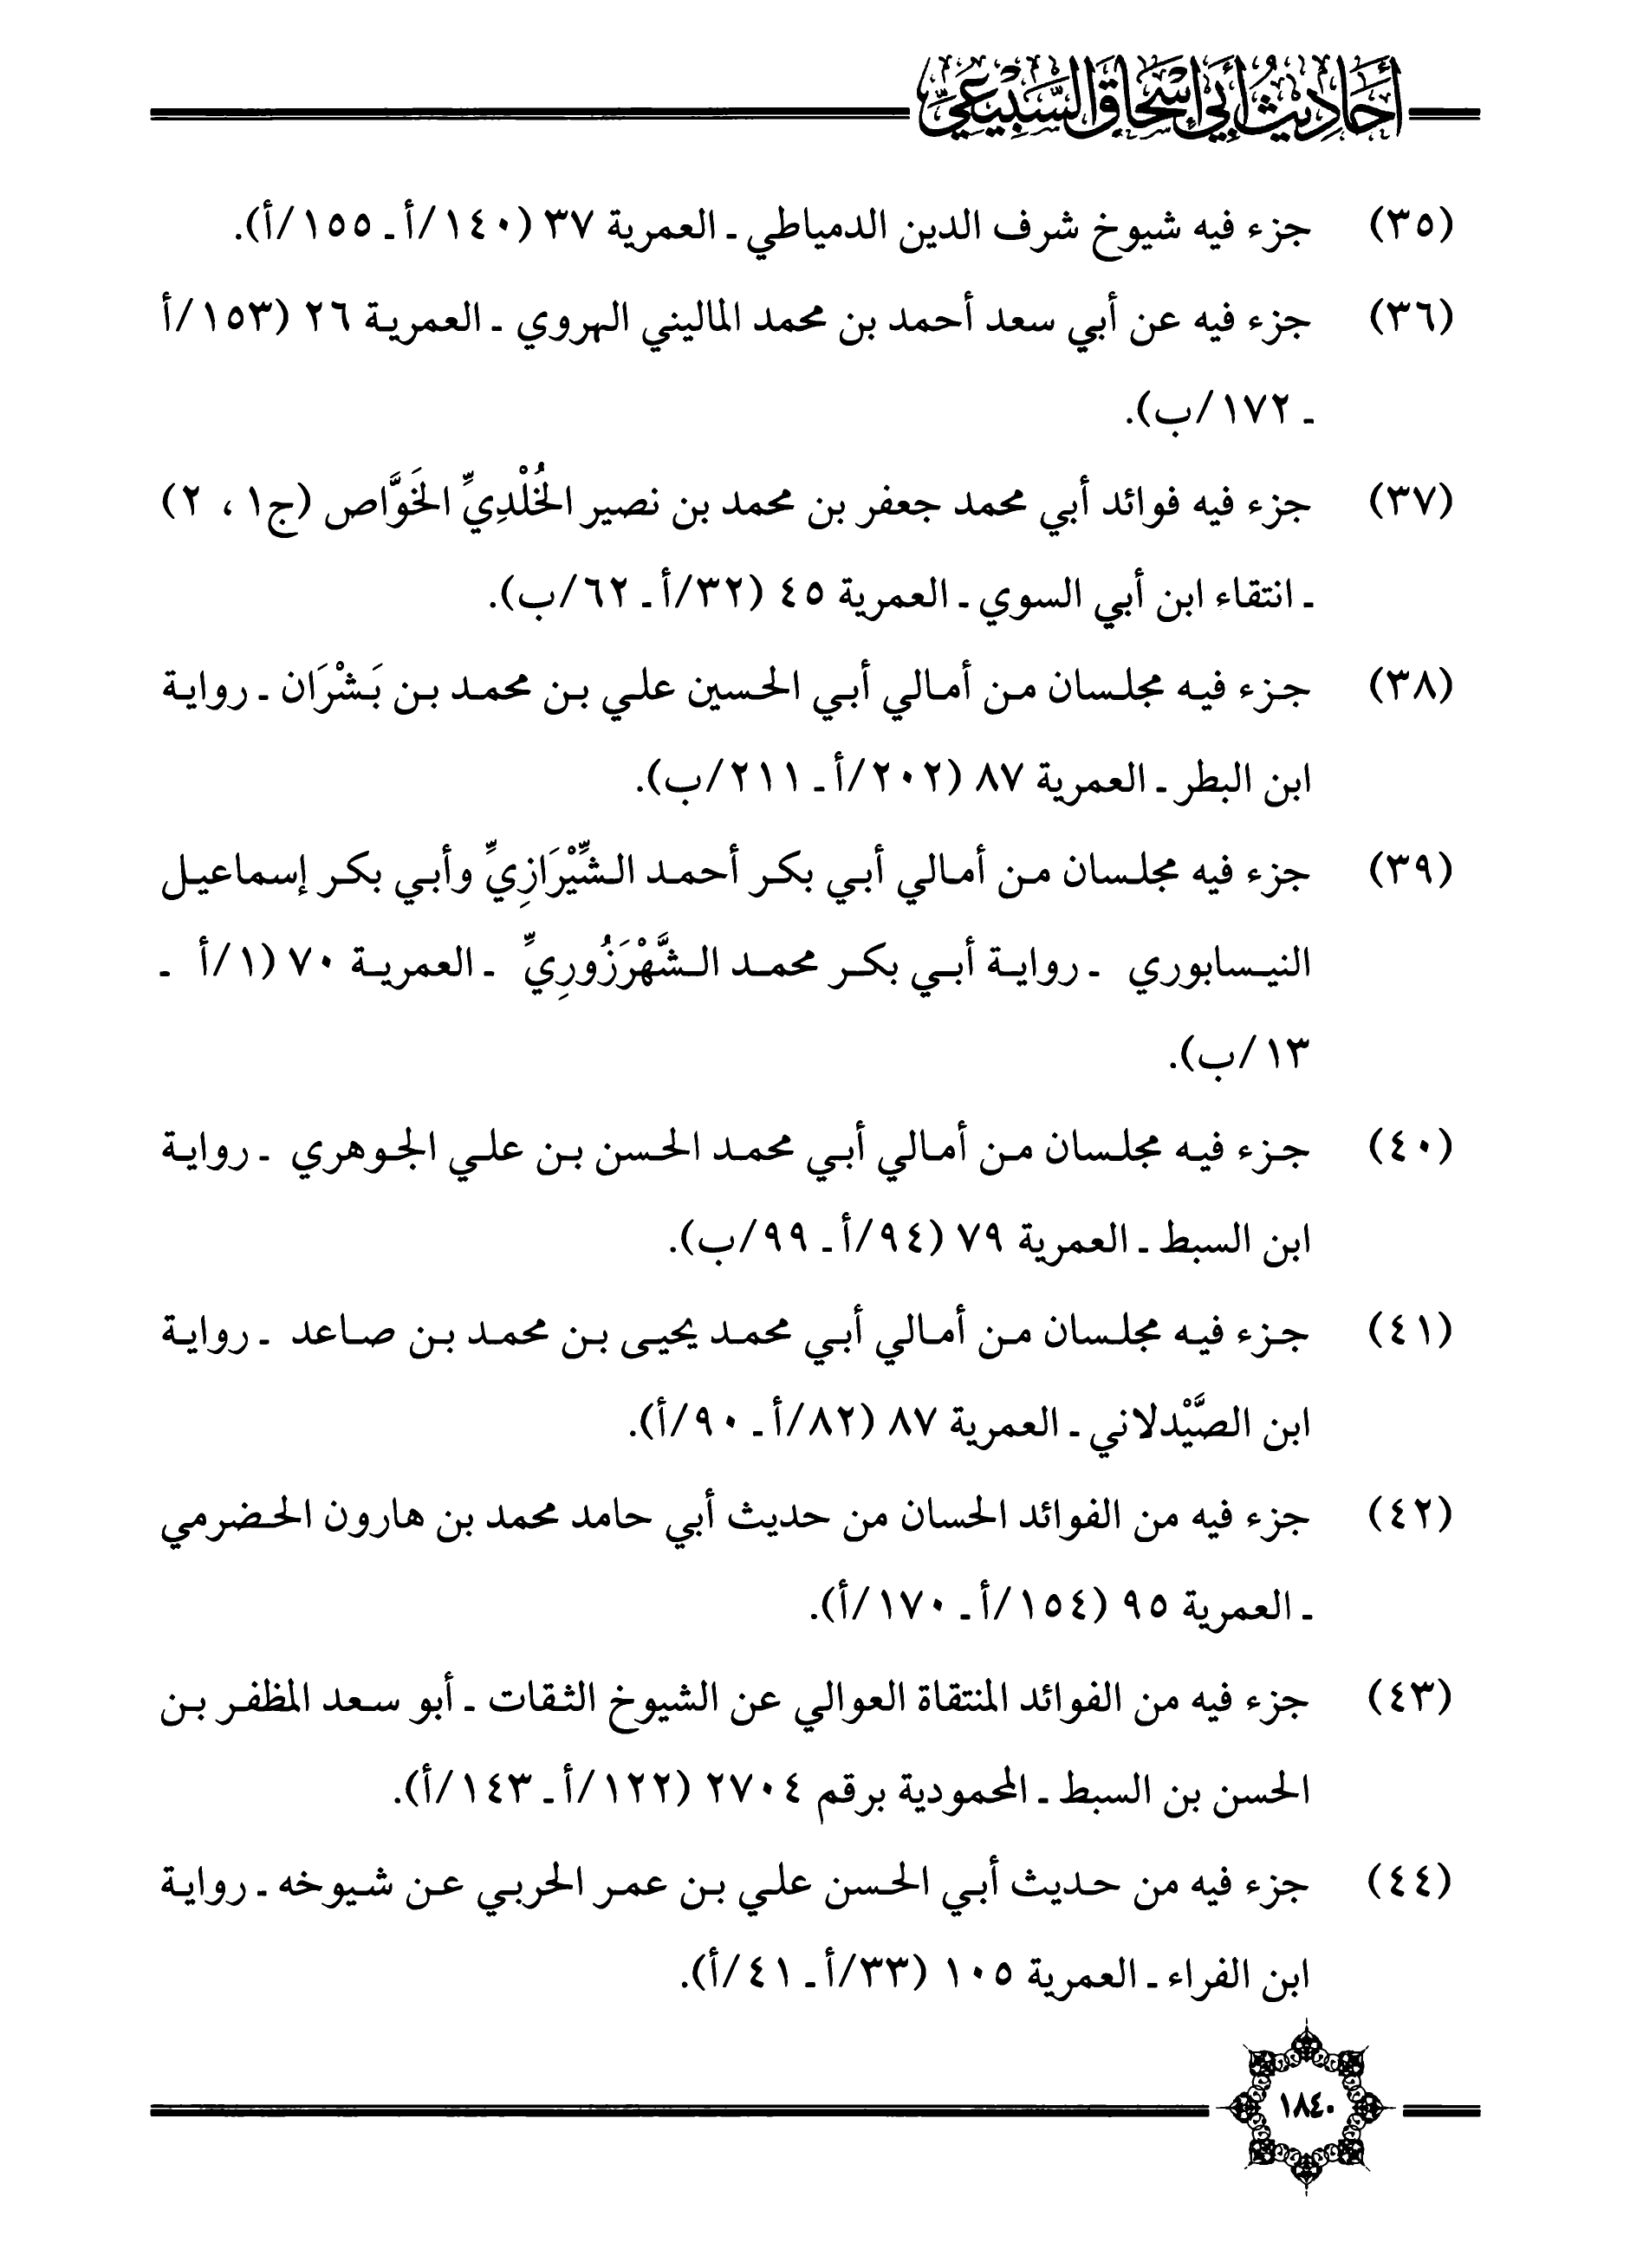 أَحَادِيثُ أَبِي إِسْحَاقَ السَّبِيْعِيِّ
(٣٥) جزء فيه شيوخ شرف الدين الدمياطي ـ العمرية ٣٧ (١٤٠/أ ـ ١٥٥/أ).
(٣٦) جزء فيه عن أبي سعد أحمد بن محمد الماليني الهروي ـ العمرية ٢٦ (١٥٣/أ
ـ ١٧٢/ب).
(٣٧) جزء فيه فوائد أبي محمد جعفر بن محمد بن نصير الخُلْدِيِّ الخَوَّاص (ج١ ، ٢)
ـ انتقاء ابن أبي السوي ـ العمرية ٤٥ (٣٢/أ ـ ٦٢/ب).
(٣٨) جزء فيه مجلسان من أمالي أبي الحسين علي بن محمد بن بَشْرَان ـ رواية
ابن البطر ـ العمرية ٨٧ (٢٠٢/أ ـ ٢١١/ب).
(٣٩) جزء فيه مجلسان من أمالي أبي بكر أحمد الشِّيْرَازِيِّ وأبي بكر إسماعيل
النيسابوري ـ رواية أبي بكر محمد الشَّهْرَزُورِيِّ ـ العمرية ٧٠ (١/أ ـ
١٣/ب).
(٤٠) جزء فيه مجلسان من أمالي أبي محمد الحسن بن علي الجوهري ـ رواية
ابن السبط ـ العمرية ٧٩ (٩٤/أ ـ ٩٩/ب).
(٤١) جزء فيه مجلسان من أمالي أبي محمد يحيى بن محمد بن صاعد ـ رواية
ابن الصَّيْدلاني ـ العمرية ٨٧ (٨٢/أ ـ ٩٠/أ).
(٤٢) جزء فيه من الفوائد الحسان من حديث أبي حامد محمد بن هارون الحضرمي
ـ العمرية ٩٥ (١٥٤/أ ـ ١٧٠/أ).
(٤٣) جزء فيه من الفوائد المنتقاة العوالي عن الشيوخ الثقات ـ أبو سعد المظفر بن
الحسن بن السبط ـ المحمودية برقم ٢٧٠٤ (١٢٢/أ ـ ١٤٣/أ).
(٤٤) جزء فيه من حديث أبي الحسن علي بن عمر الحربي عن شيوخه ـ رواية
ابن الفراء ـ العمرية ١٠٥ (٣٣/أ ـ ٤١/أ).
١٨٤٠